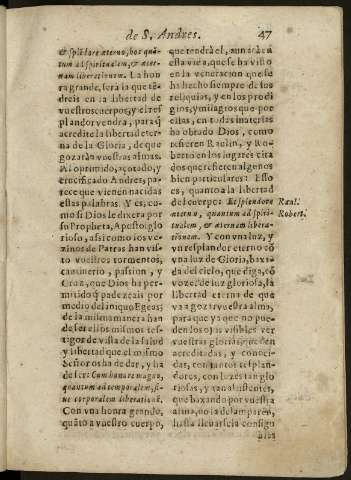 de S. Andres.
47
& splēdore æterno, hoc quā-
tum ad spiritualem, & æter-
nam liberationem. La hon
ra grande, serà la que tē-
dreis en la libertad de
vuestros cuerpos, y el res
plandor vendra, para q̄
acredite la libertad eter-
na de la Gloria, de que
gozaràn vuestras almas.
Al oprimido, açotado, y
crucificado Andres, pa-
rece que vienen nacidas
estas palabras. Y es, co-
mo si Dios le dixera por
su Propheta, Apostol glo
rioso, assi como los ve-
zinos de Patras han vis-
to vuestros tormentos,
cautiuerio, passion, y
Cruz, que Dios ha per-
mitido q̄ padezcais por
medio del iniquo Egeas;
de la misma manera han
de ser ellos mismos tes-
tigos de vista de la salud
y libertad que el mismo
Señor os ha de dar, y ha
de ser: Cum honore magno,
quantum ad temporalem, si-
ue corporalem liberationē.
Con vna honra grande,
quāto a vuestro cuerpo,
que tendrà el, aun acà en
esta vida, que se ha visto
en la veneracion que se
ha hecho siempre de los
reliquias, y en los prodi
gios, y milagros que por
ellas, y en todas materias
ha obrado Dios, como
refieren Raulin, y Ro-
berto en los lugares cita
dos que refieren algunos
bien particulares. Esso
es, quanto a la libertad
del cuerpo: Et splendore
æterno, quantum ad spiri-
tualem, & æternam libera-
tionem. Y con vna luz, y
vn resplandor eterno cō
vna luz de Gloria, baxa-
da del cielo, que diga, cō
vozes de luz gloriosa, la
libertad eterna de que
va a gozar vuestra alma,
para que ya que no pue-
den los ojos visibles ver
vuestras glorias, queden
acreditadas, y conoci-
das, con tantos resplan-
dores, con luzes tan glo
riosas, y tan assistentes,
que baxando por vuestra
alma, no la desamparen,
hasta lleuarsela consigo
Raul.
Robert.